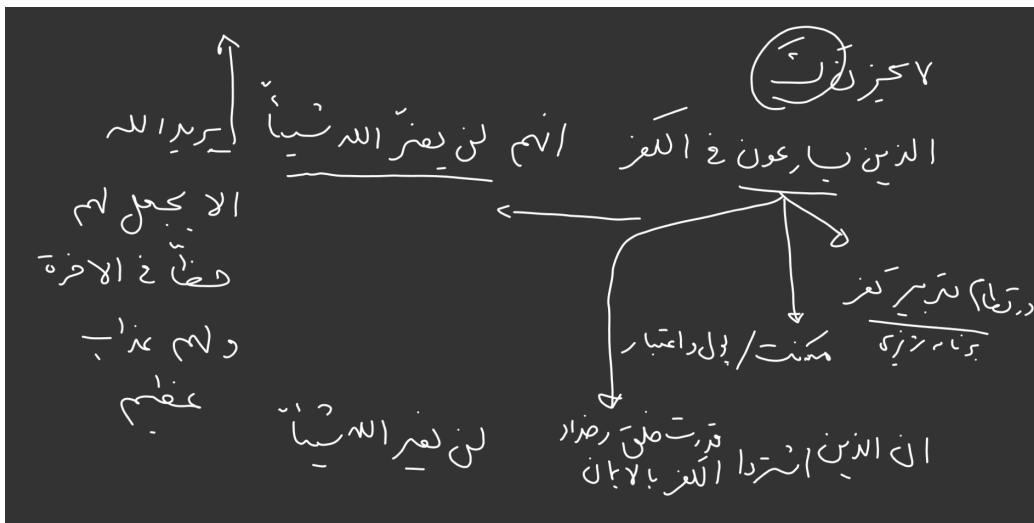 لا یحزنک
الذین یسارعون فی الکفر انهم لن یضرّ الله شیئاً یرید الله
الا یجعل لهم
حظّاً فی الاخرة
و لهم عذاب
عظیم
تدبیر کفر
برنامه ریزی
مکنت / پول و اعتبار
قدرت خلق رخداد
ان الذین اشتروا الکفر بالایمان لن یضر الله شیئاً